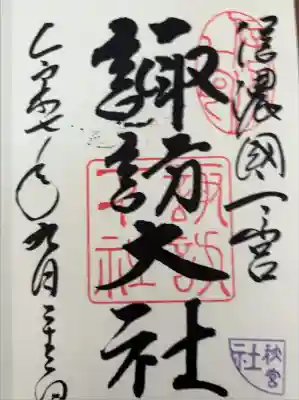 信濃國一宮
諏訪大社
諏訪
大社
秋宮
社
令和七年九月二十三日